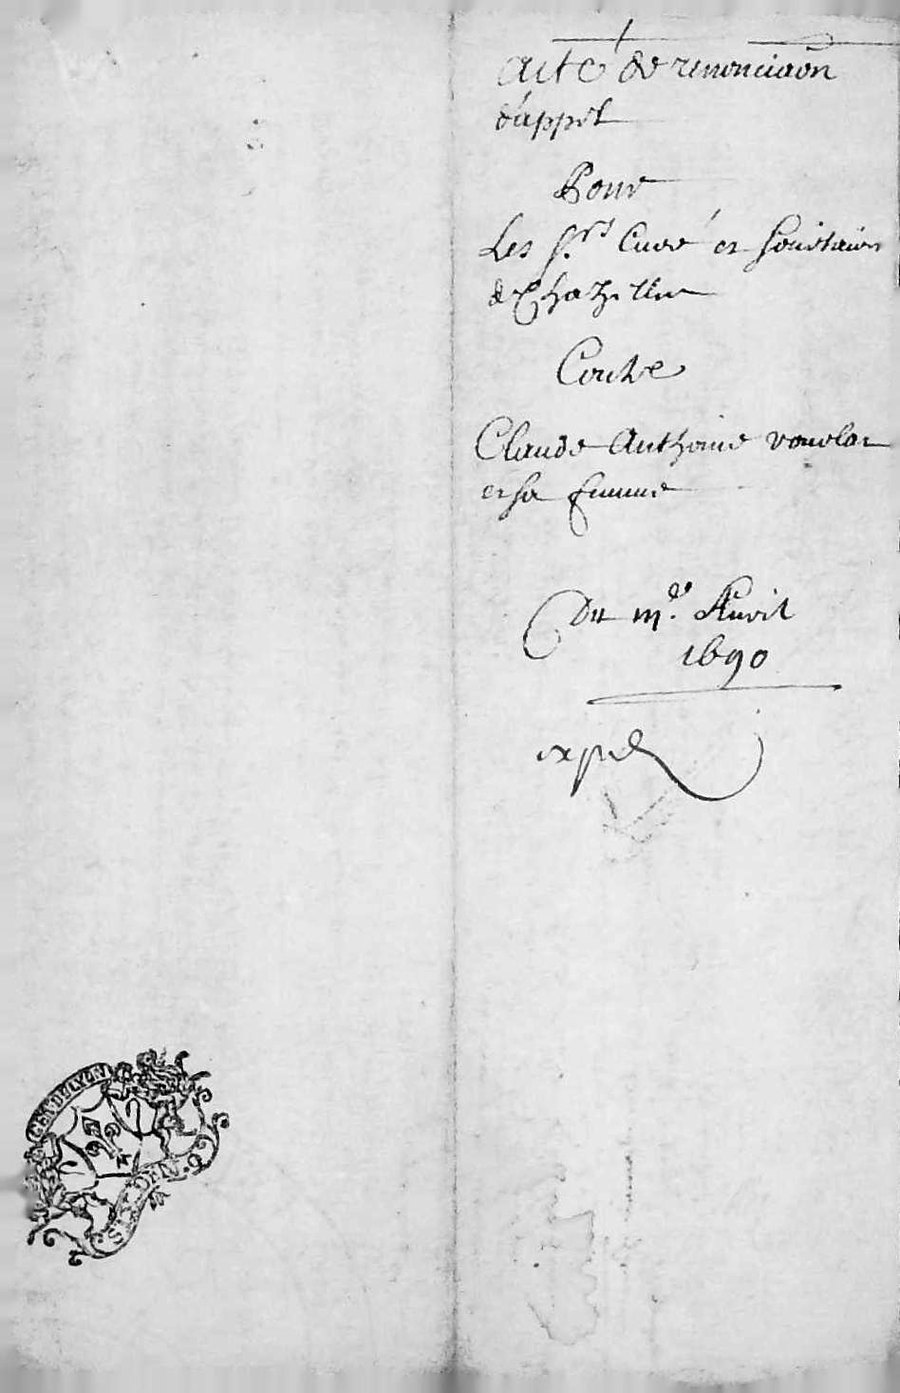 Acte de renonciaõn
d'appel
Pour
Les S.rs Curé et Societaires
de Chazelles
Contre
Claude Anthoine
et sa femme
Du m.e Avril
1690
expe
GEN. DE LYON
SIX DEN.